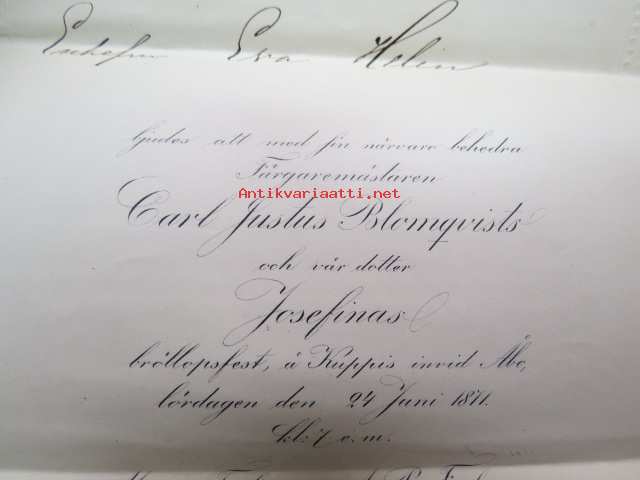 Eva Helin
bjudes att med sin närvaro behedra
Färgaremästaren
Antikvariaatti.net
Carl Justus Blomqvists
och vår dotter
Josefinas
bröllopsfest, å Kuppis invid Åbo,
lördagen den 24 Juni 1871.
kl: 7 e.m.